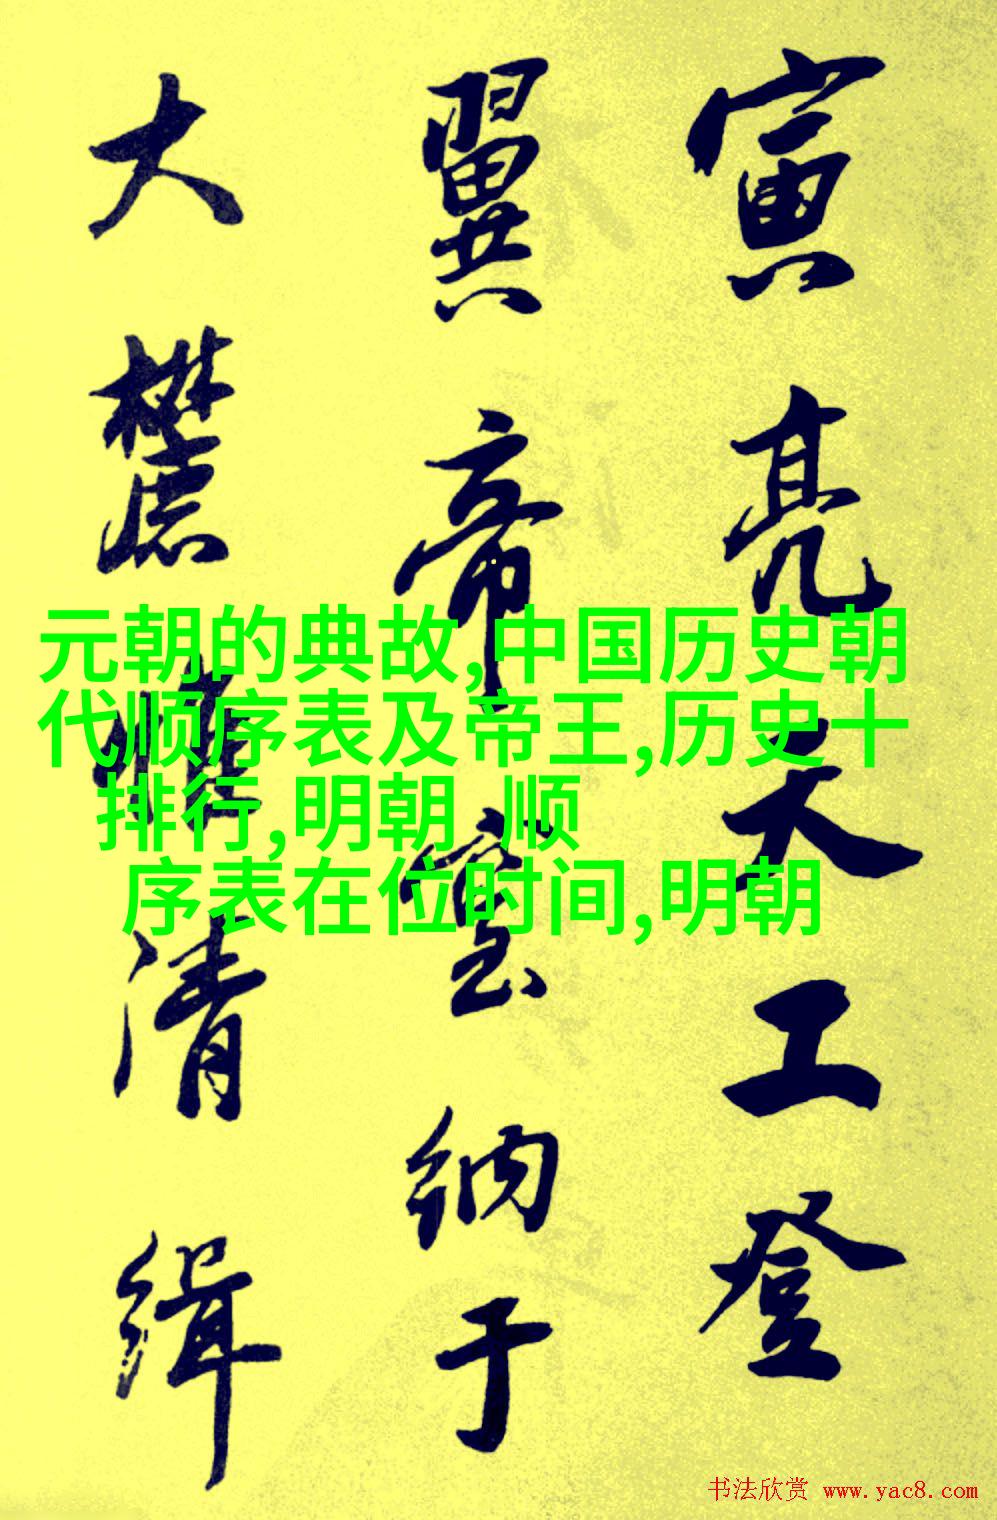 寅亮天工登
翼帝室纳于
大麓惟清缉
元朝的典故,中国历史朝
代顺序表及帝王,历史十
排行,明朝 顺
序表在位时间,明朝
书法欣赏 www.yac8.com